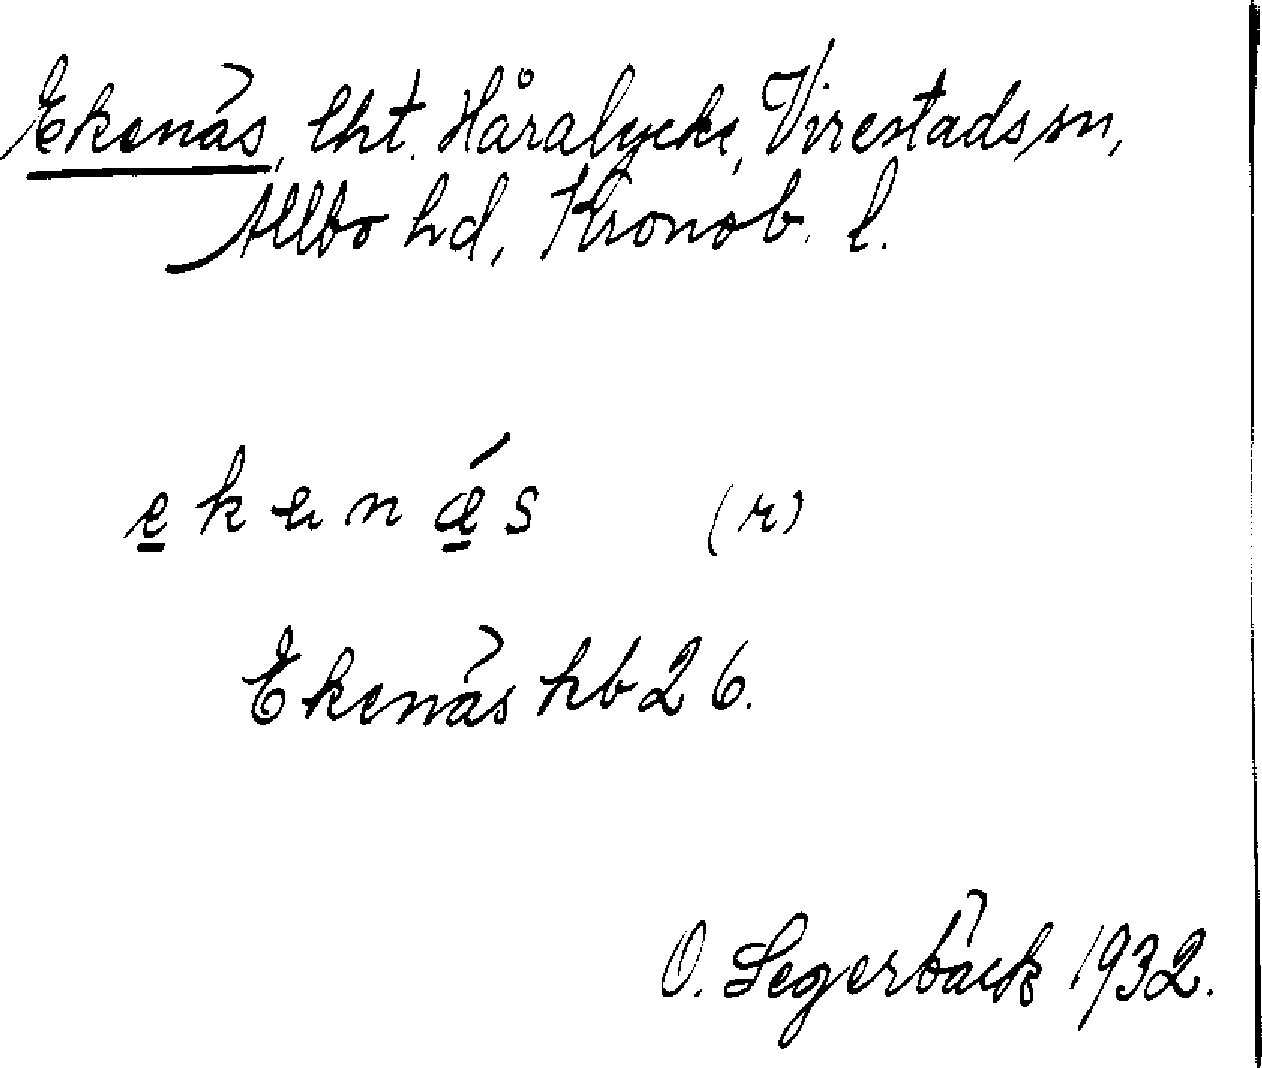 Ekenäs, lht. Håralycke, Virestads sn,
Allbo hd, Kronob. l.
e̲ k e n ǽ̲ s (r)
Ekenäs hb 26.
O. Segerbäck 1932.